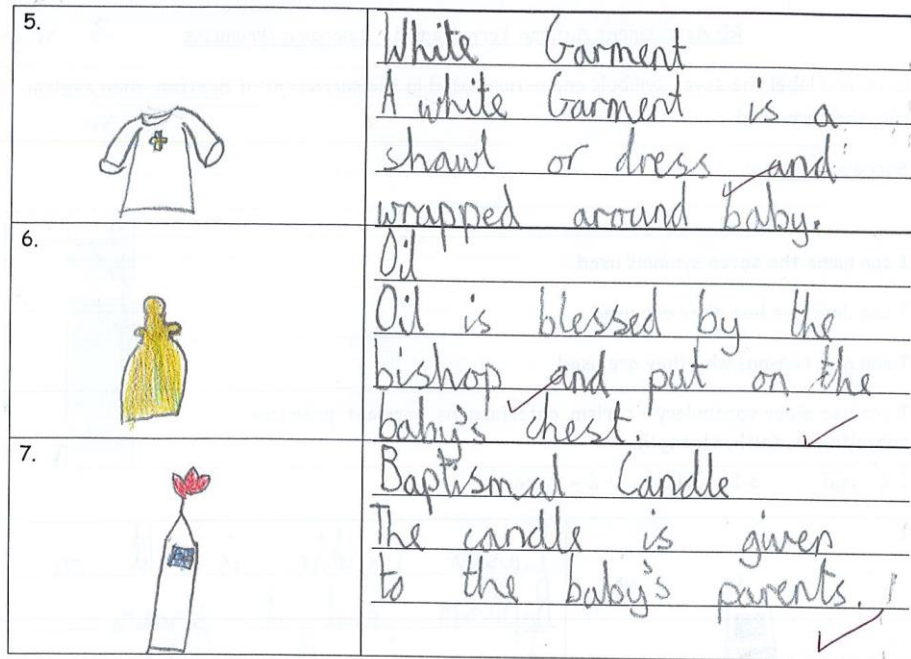 5.
White Garment
A white Garment is a
shawl or dress and
wrapped around baby.
6.
Oil
Oil is blessed by the
bishop and put on the
baby's chest.
7.
Baptismal Candle
The candle is given
to the baby's parents.